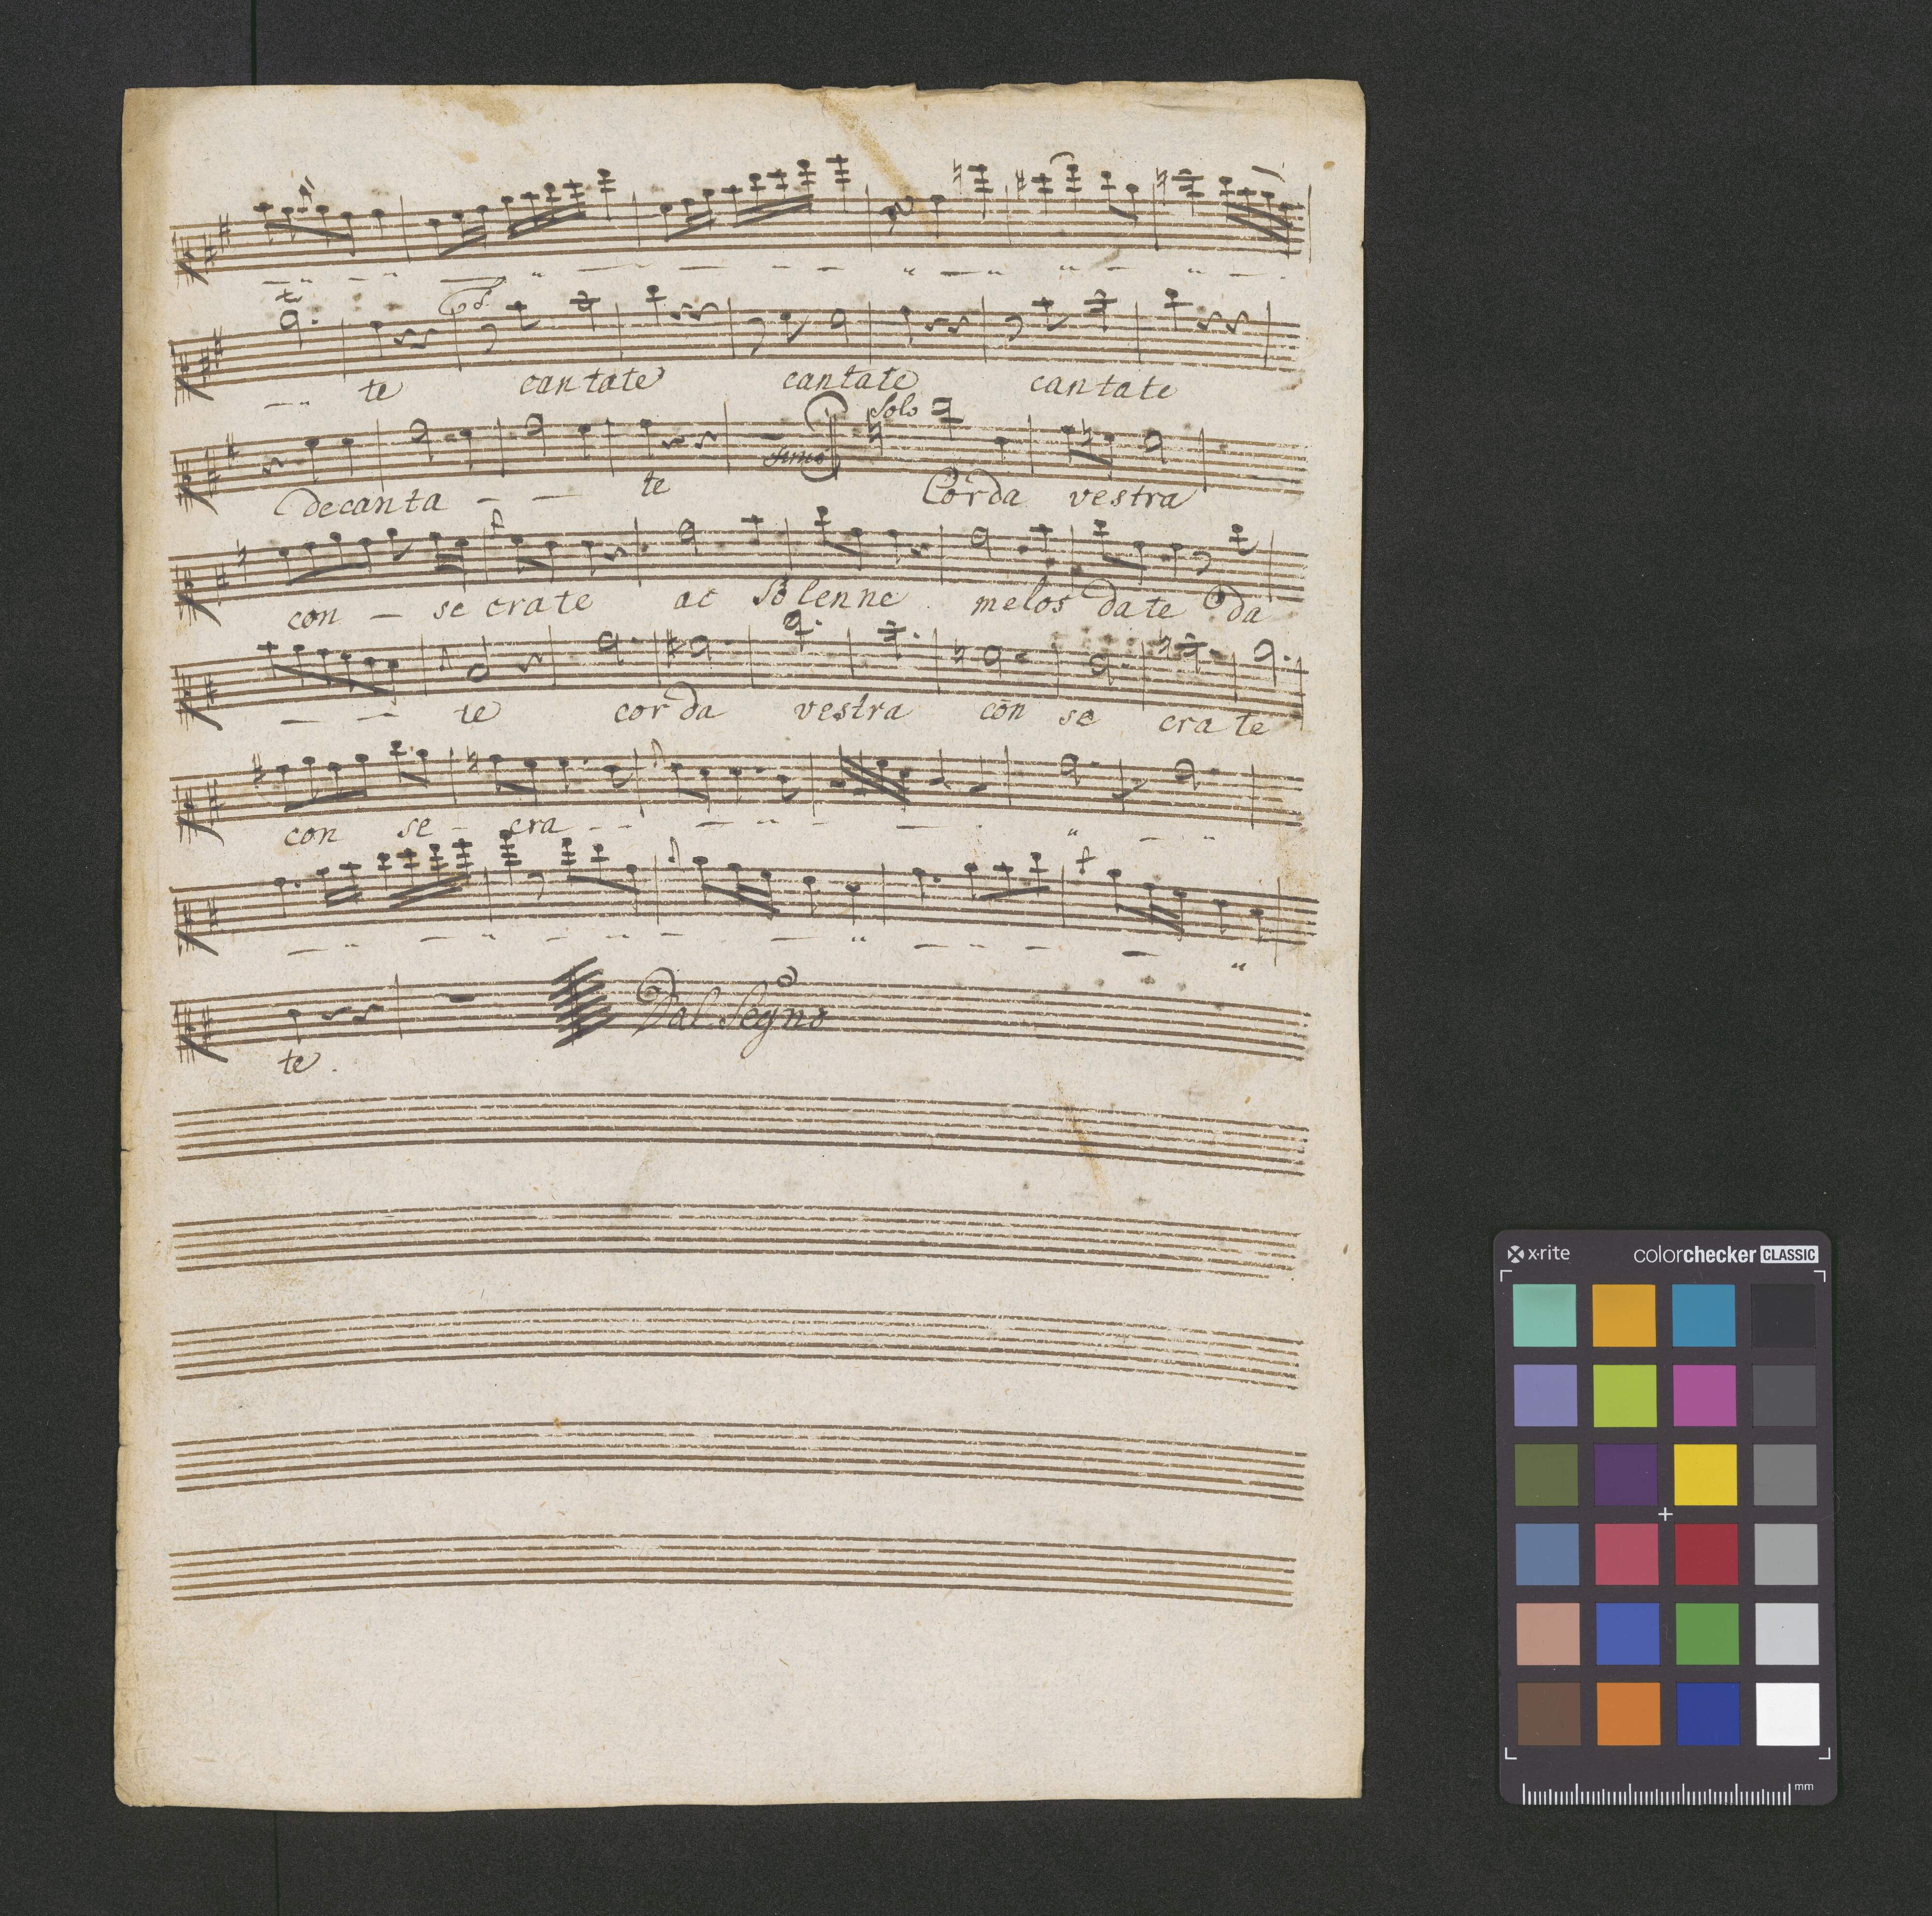 te cantate cantate cantate
Solo
decanta - - te Corda vestra
con - se crate ac Solenne melos date da
- - te corda vestra con se cra te
con se - cra - -
Dal Segno
te.
x·rite colorchecker CLASSIC
mm